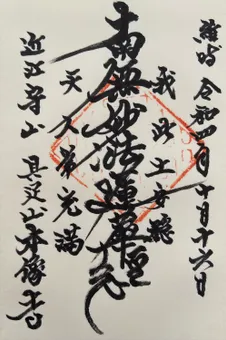 維時 令和四年十月十六日
我此土安穏
南無妙法蓮華経
天人常充満
近江守山 具足山本像寺